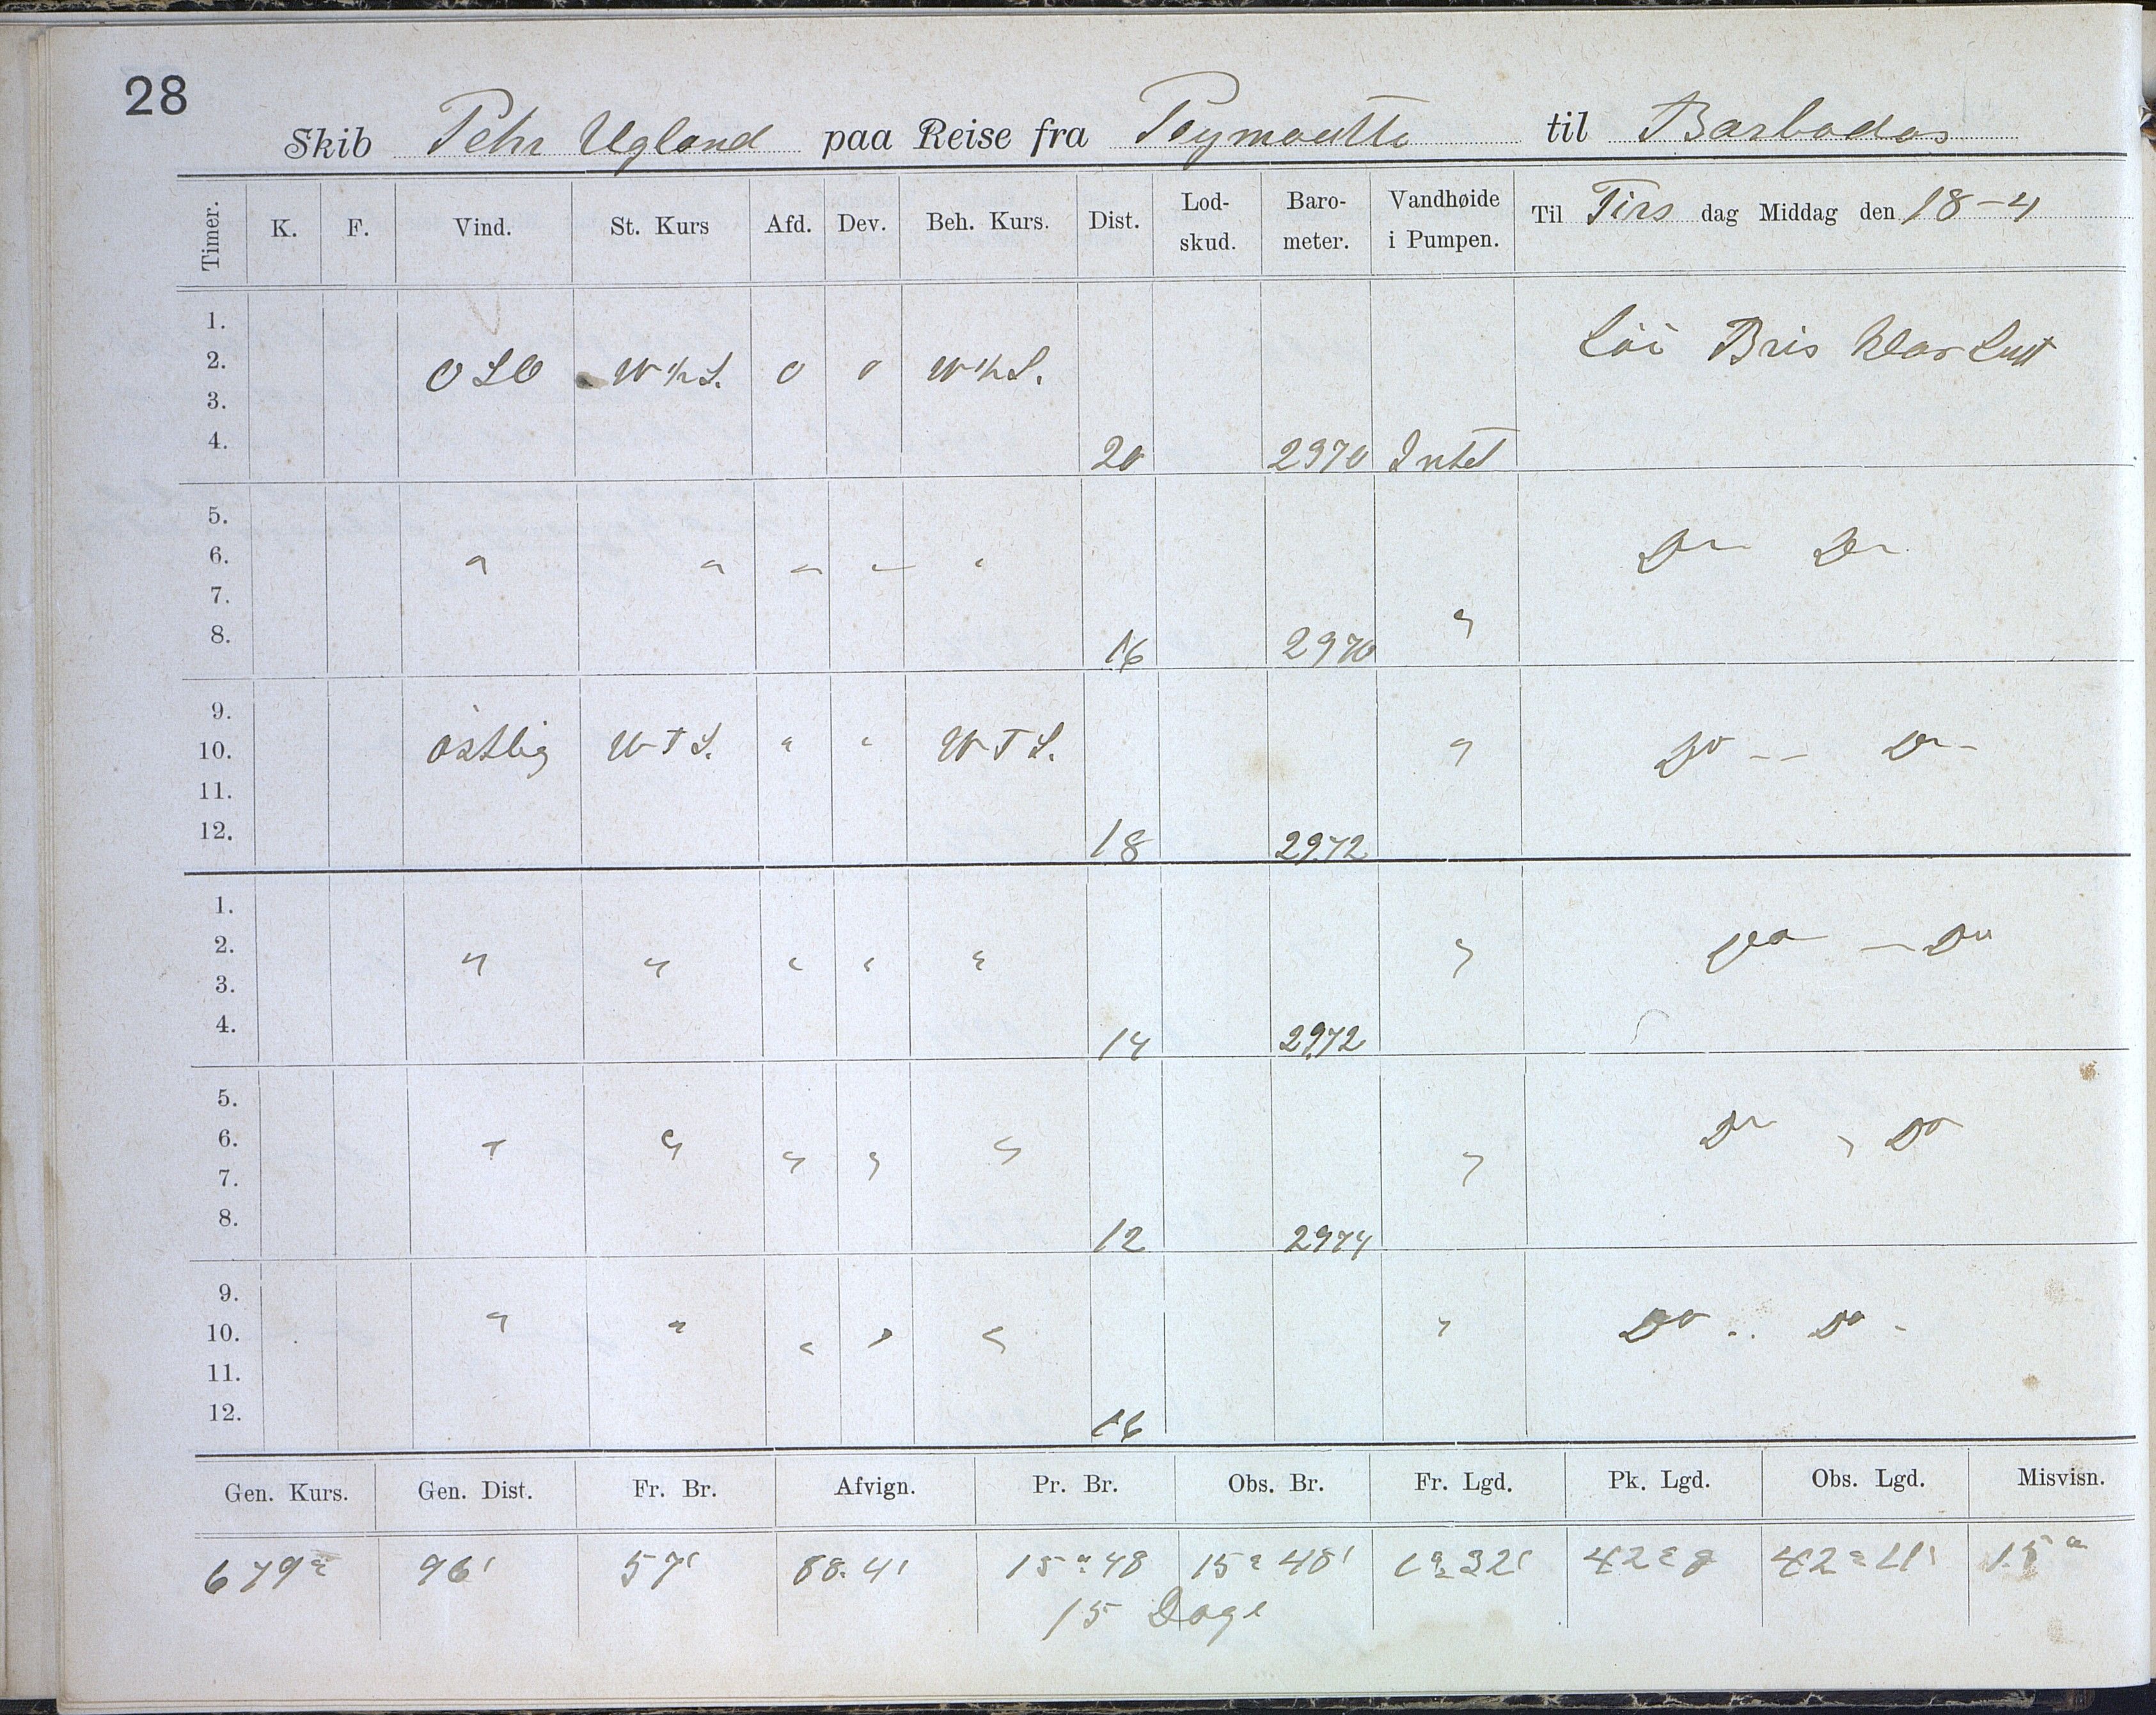 28
Skib Pehr Ugland paa Reise fra til Barbados
Timer. K. F. Vind. St. Kurs Afd. Dev. Beh. Kurs. Dist. Lod-skud. Baro-meter. Vandhøide i Pumpen. Til Tirs dag Middag den 18-4
1.
2. OSO W½S. 0 0 W½S. Löi Bris klar Luft
3.
4. 20 2970 Intet
5.
6. " " " " " Do Do
7.
8. 16 2970 "
9.
10. östlig WTS. " " WTS. " Do -- Do -
11.
12. 18 2972
1.
2. " " " " " " Do - Do
3.
4. 14 2972
5.
6. " " " " " " Do " Do
7.
8. 12 2974
9.
10. " " " " " " Do .. Do -
11.
12. 16
Gen. Kurs. Gen. Dist. Fr. Br. Afvign. Pr. Br. Obs. Br. Fr. Lgd. Pk. Lgd. Obs. Lgd. Misvisn.
679° 96' 57' 15° 48 15° 48' 1° 32' 42° 8 15°
15 Dage